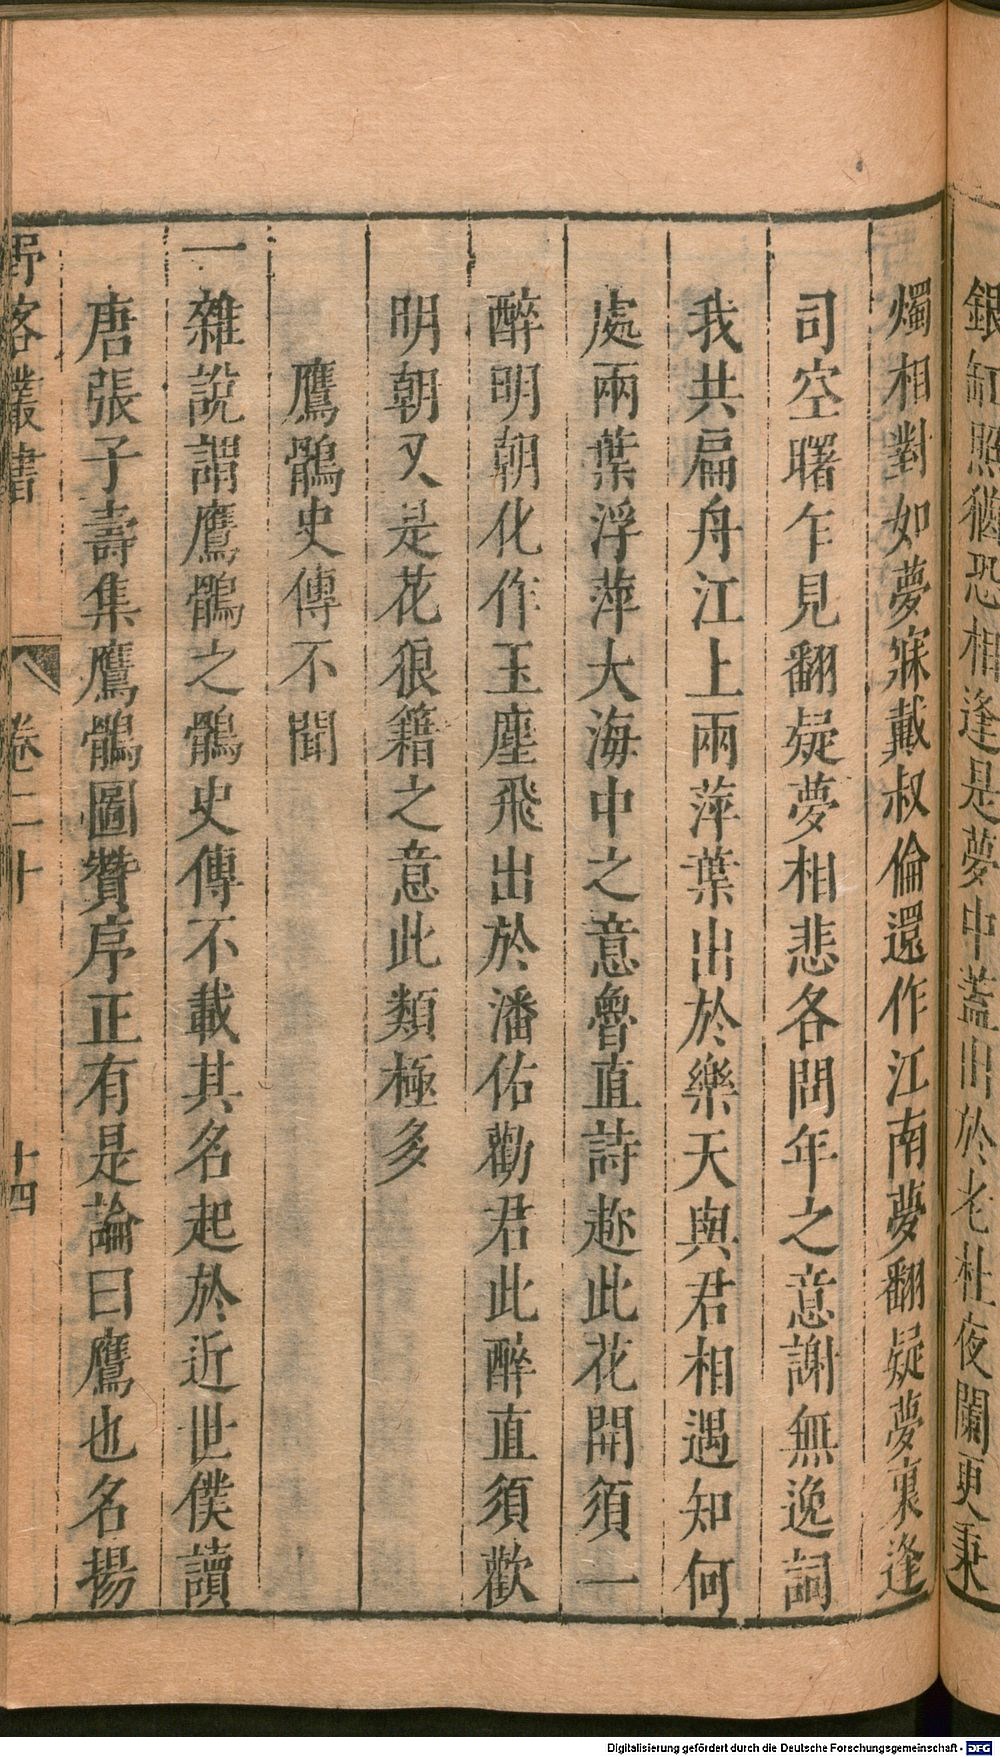 銀缸照猶恐相逢是夢中蓋出於老杜夜闌更秉
燭相對如夢寐戴叔倫還作江南夢翻疑夢裏逢
司空曙乍見翻疑夢相悲各問年之意謝無逸詞
我共扁舟江上兩萍葉出於樂天與君相遇知何
處兩葉浮萍大海中之意魯直詩趂此花開須一
醉明朝化作玉塵飛出於潘佑勸君此醉直須歡
明朝又是花狼籍之意此類極多
鷹鶻史傳不聞
一雜說謂鷹鶻之鶻史傳不載其名起於近世僕讀
唐張子壽集鷹鶻圖贊序正有是論曰鷹也名揚
野客叢書
卷二十
十四
Digitalisierung gefördert durch die Deutsche Forschungsgemeinschaft - DFG